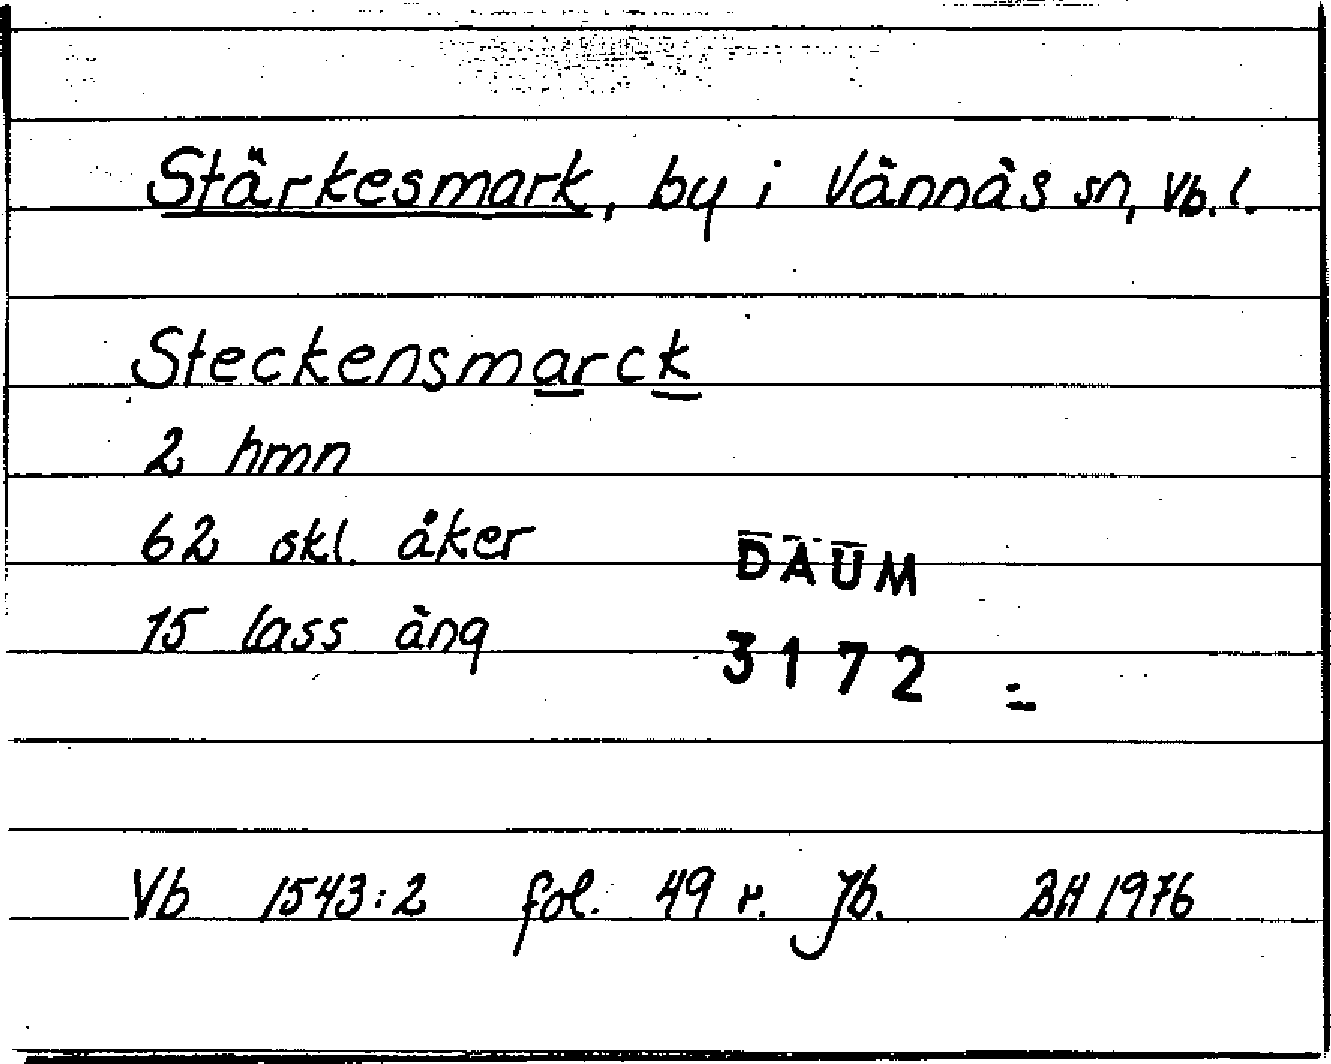 Stärkesmark, by i Vännäs sn, Vb. l.
Steckensmarck
2 hmn
62 skl. åker
DAUM
15 lass äng
3172
Vb 1543:2 fol. 49 r. Jb. BH 1976